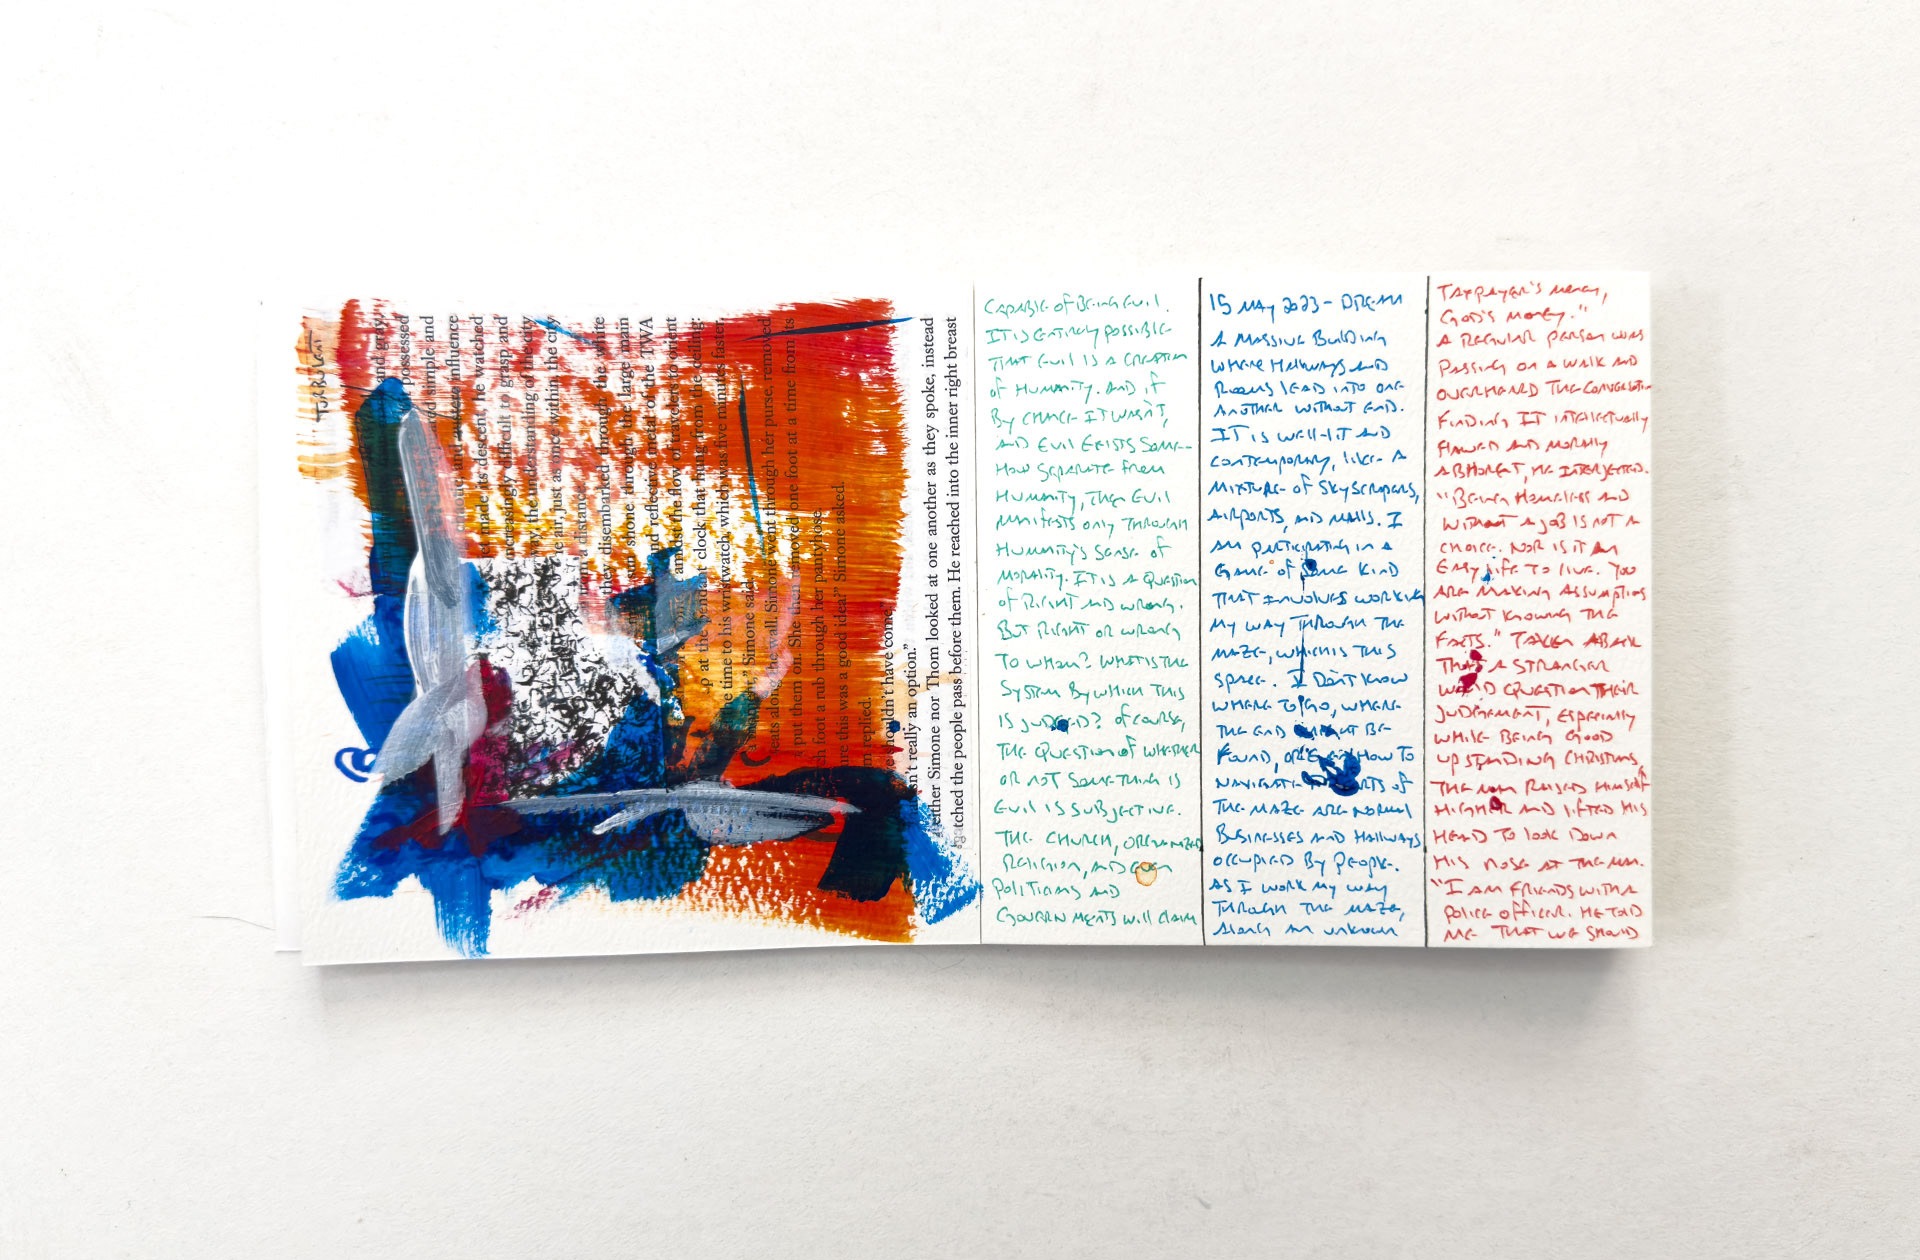 TURBULENT
and gray,
possessed
and simple and
influence
et made its descent, he watched
increasingly difficult to grasp and
way, the understanding of the city
e air, just as once within the city
from a distance.
they disembarked through the white
sun shone through the large main
and reflective metal of the TWA
amidst the flow of travelers to orient
p at the pendant clock that hung from the ceiling;
e time to his wristwatch, which was five minutes faster.
a moment," Simone said.
seats along the wall, Simone went through her purse, removed
put them on. She then removed one foot at a time from its
ch foot a rub through her pantyhose.
ure this was a good idea?" Simone asked.
m replied.
e shouldn't have come."
asn't really an option."
either Simone nor Thom looked at one another as they spoke, instead
atched the people pass before them. He reached into the inner right breast
CAPABLE OF BEING EVIL.
IT IS ENTIRELY POSSIBLE
THAT EVIL IS A CREATION
OF HUMANITY. AND IF
BY CHANCE IT WASN'T,
AND EVIL EXISTS SOME-
HOW SEPARATE FROM
HUMANITY, THEN EVIL
MANIFESTS ONLY THROUGH
HUMANITY'S SENSE OF
MORALITY. IT IS A QUESTION
OF RIGHT AND WRONG.
BUT RIGHT OR WRONG
TO WHOM? WHAT IS THE
SYSTEM BY WHICH THIS
IS JUDGED? OF COURSE,
THE QUESTION OF WHETHER
OR NOT SOMETHING IS
EVIL IS SUBJECTIVE.
THE CHURCH, ORGANIZED
RELIGION, AND EVEN
POLITICIANS AND
GOVERNMENTS WILL CLAIM
15 MAY 2023 - DREAM
A MASSIVE BUILDING
WHERE HALLWAYS AND
ROOMS LEAD INTO ONE
ANOTHER WITHOUT END.
IT IS WELL-LIT AND
CONTEMPORARY, LIKE A
MIXTURE OF SKYSCRAPERS,
AIRPORTS, AND MALLS. I
AM PARTICIPATING IN A
GAME OF SOME KIND
THAT INVOLVES WORKING
MY WAY THROUGH THE
MAZE, WHICH IS THIS
SPACE. I DON'T KNOW
WHERE TO GO, WHERE
THE END MIGHT BE
FOUND, OR EVEN HOW TO
NAVIGATE. PARTS OF
THE MAZE ARE NORMAL
BUSINESSES AND HALLWAYS
OCCUPIED BY PEOPLE.
AS I WORK MY WAY
THROUGH THE MAZE,
ALONG AN UNKNOWN
TAXPAYER'S MONEY,
GOD'S MONEY."
A REGULAR PERSON WAS
PASSING ON A WALK AND
OVERHEARD THE CONVERSATION
FINDING IT INTELLECTUALLY
FLAWED AND MORALLY
ABHORENT, HE INTERJECTED.
"BEING HOMELESS AND
WITHOUT A JOB IS NOT A
CHOICE. NOR IS IT AN
EASY LIFE TO LIVE. YOU
ARE MAKING ASSUMPTIONS
WITHOUT KNOWING THE
FACTS." TAKEN ABACK
THAT A STRANGER
WOULD QUESTION THEIR
JUDGEMENT, ESPECIALLY
WHILE BEING GOOD
UPSTANDING CHRISTIANS,
THE MAN RAISED HIMSELF
HIGHER AND LIFTED HIS
HEAD TO LOOK DOWN
HIS NOSE AT THE MAN.
"I AM FRIENDS WITH A
POLICE OFFICER. HE TOLD
ME THAT WE SHOULD